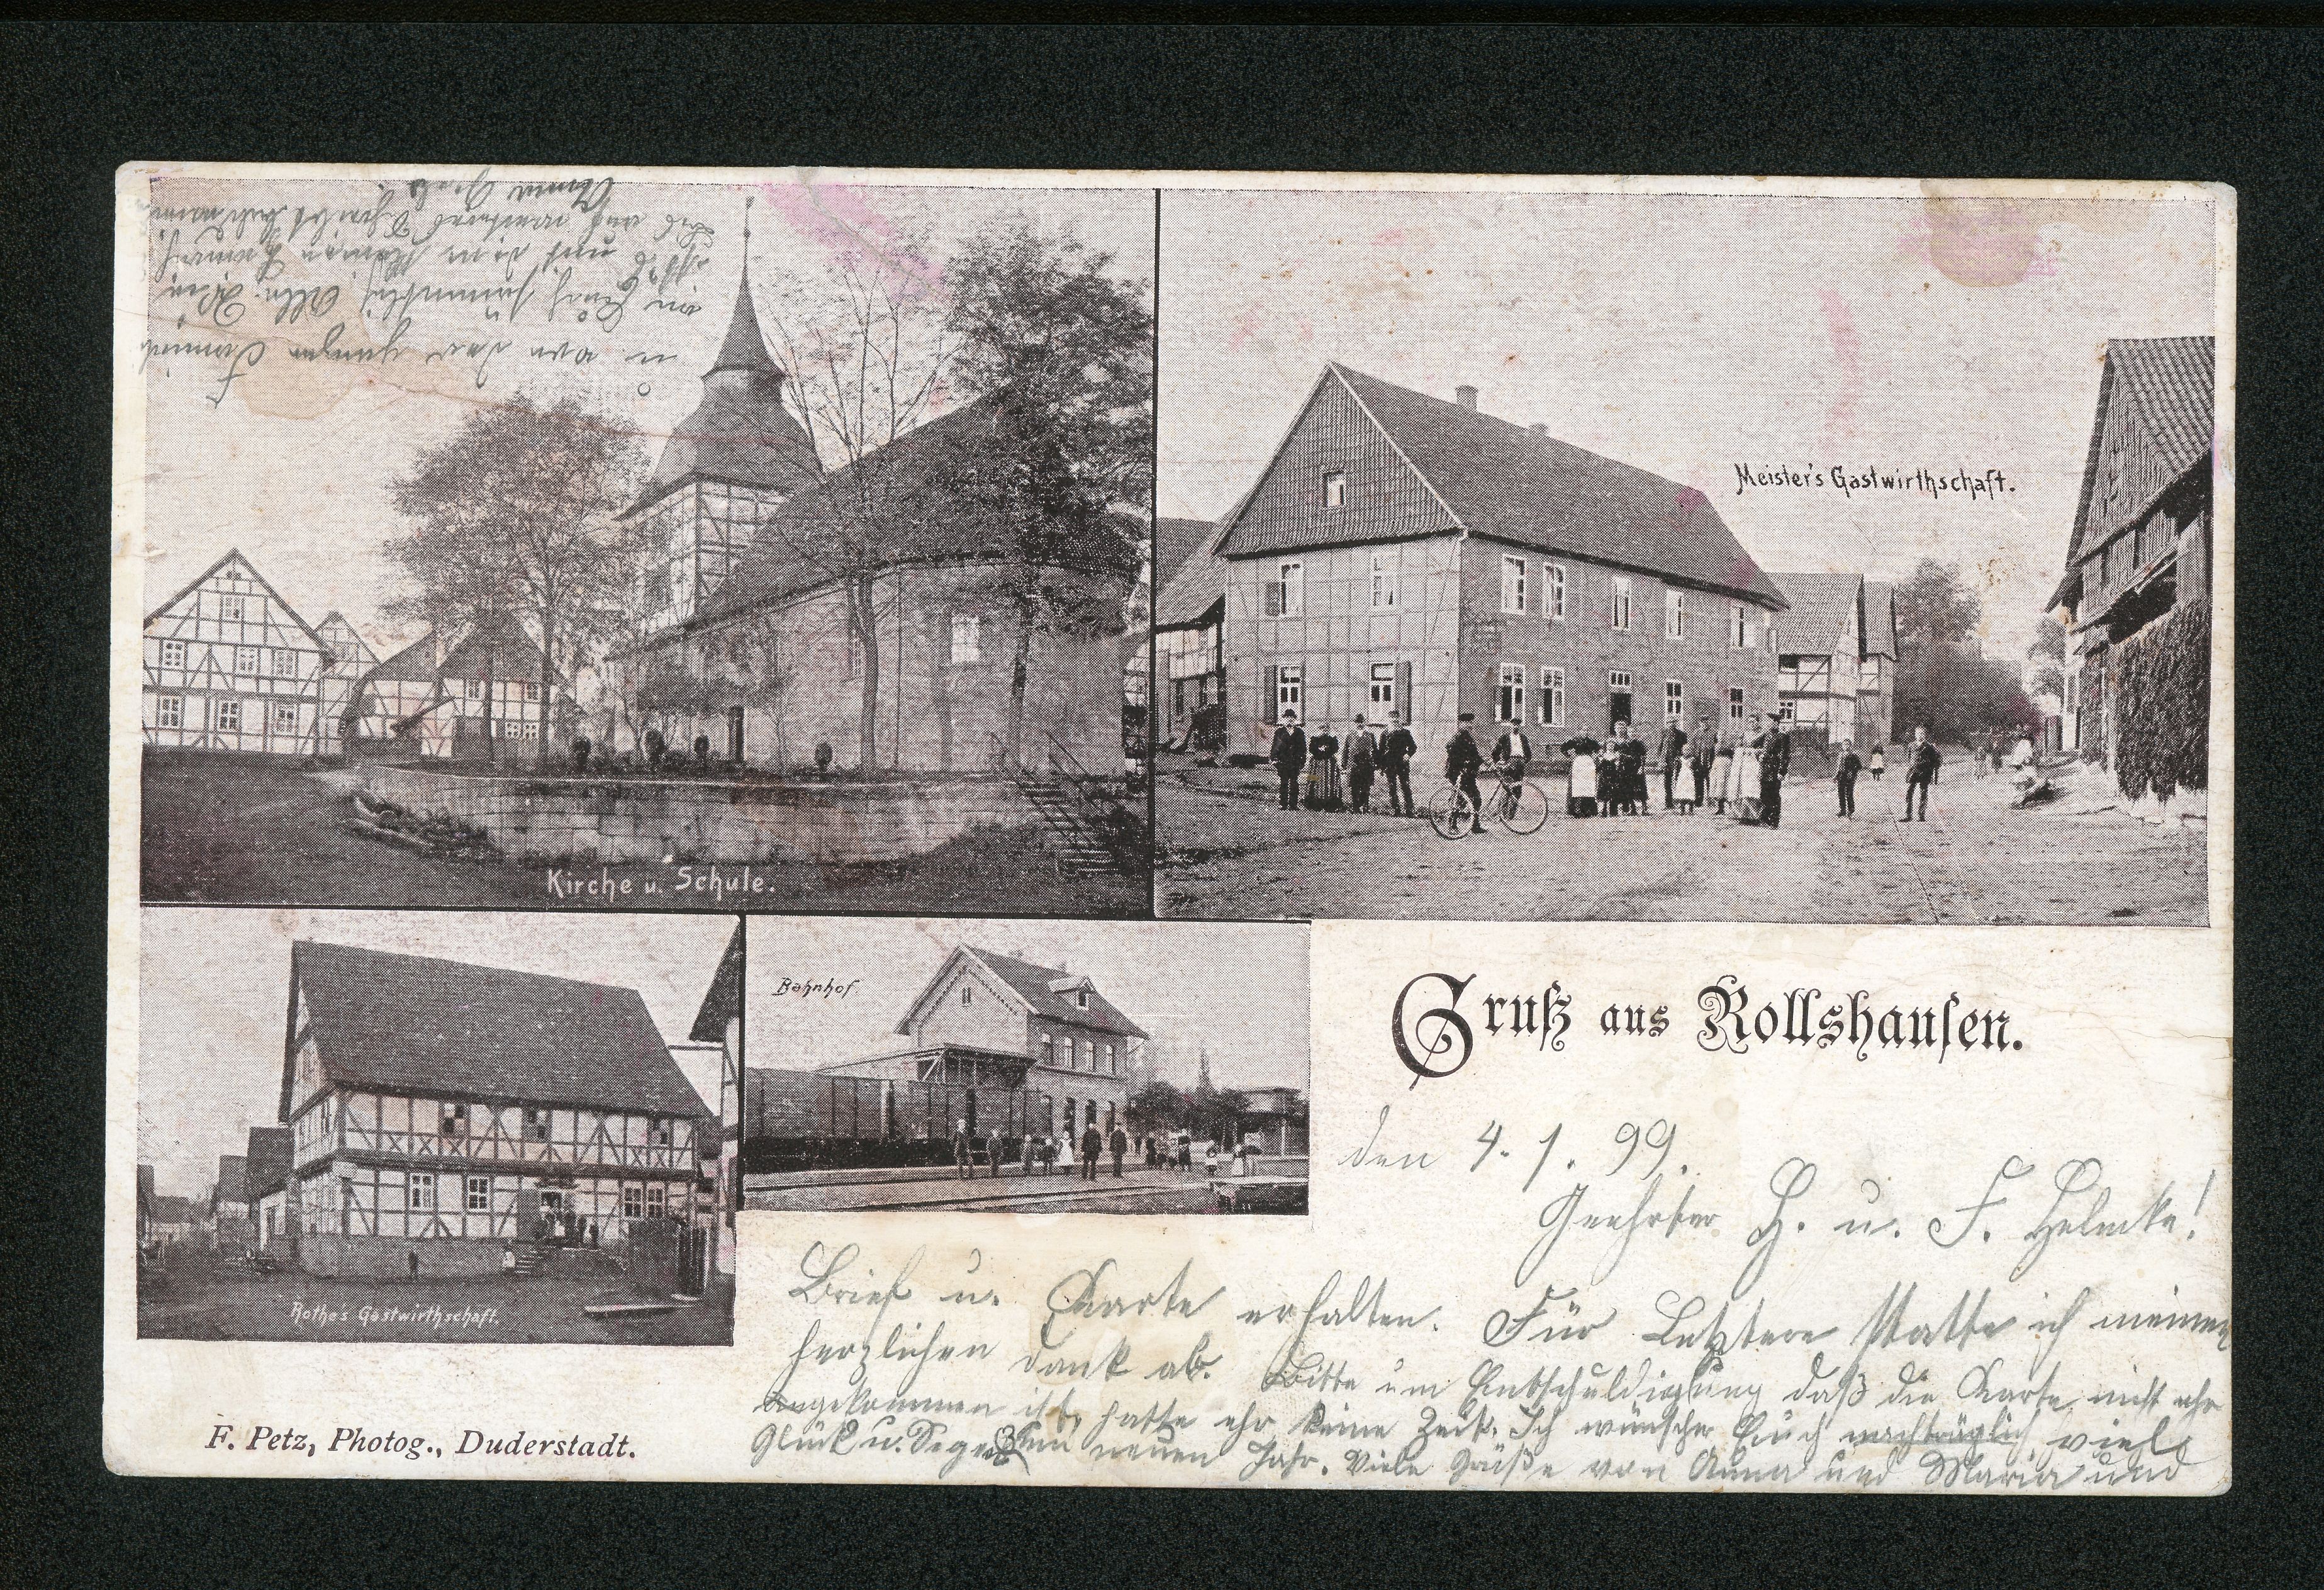 Kirche u. Schule.
Meister's Gastwirthschaft.
Rothe's Gastwirthschaft.
Bahnhof
Gruß aus Rollshausen.
F. Petz, Photog., Duderstadt.
den 4. 1. 99.
Geehrter H. u. F. Helmke!
Brief u. Karte erhalten. Für Letztere statte ich meinen
herzlichen Dank ab. Bitte um Entschuldigung daß die Karte nicht ehr
angekommen ist, hatte ehr keine Zeit. Ich wünsche Euch nachträglich viel
Glück u. Segen zum neuen Jahr. Viele Grüße von Anna und Maria und
u von der ganzen